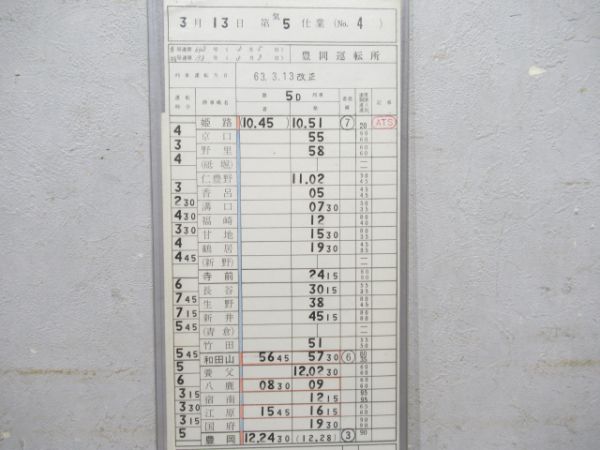 3月13日 第気5仕業 (No. 4)
豊岡運転所
列車運転月日 63.3.13改正
運転時分 停車場名 第 5D 列車 着 発 着発線 記事
姫路 (10.45) 10.51 ⑦ 20 ATS
4 京口 55
3 野里 58
4 (砥堀)
仁豊野 11.02
3 香呂 05
2 30 溝口 07 30
4 30 福崎 12
3 30 甘地 15 30
4 鶴居 19 30
4 45 (新野)
寺前 24 15
6 長谷 30 15
7 45 生野 38
7 15 新井 45 15
5 45 (青倉)
竹田 51
5 45 和田山 56 45 57 30 ⑥
5 養父 12.02 30
6 八鹿 08 30 09
3 15 宿南 12 15
3 30 江原 15 45 16 15
3 15 国府 19 30
5 豊岡 12.24 30 (12.28) ③ 90